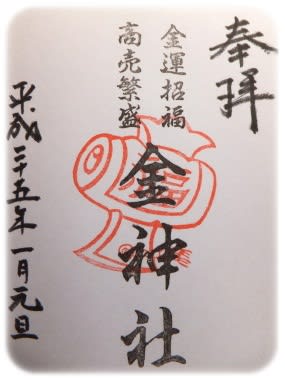 奉拝
金運招福
高売繁盛
金神社
平成二十五年一月元旦